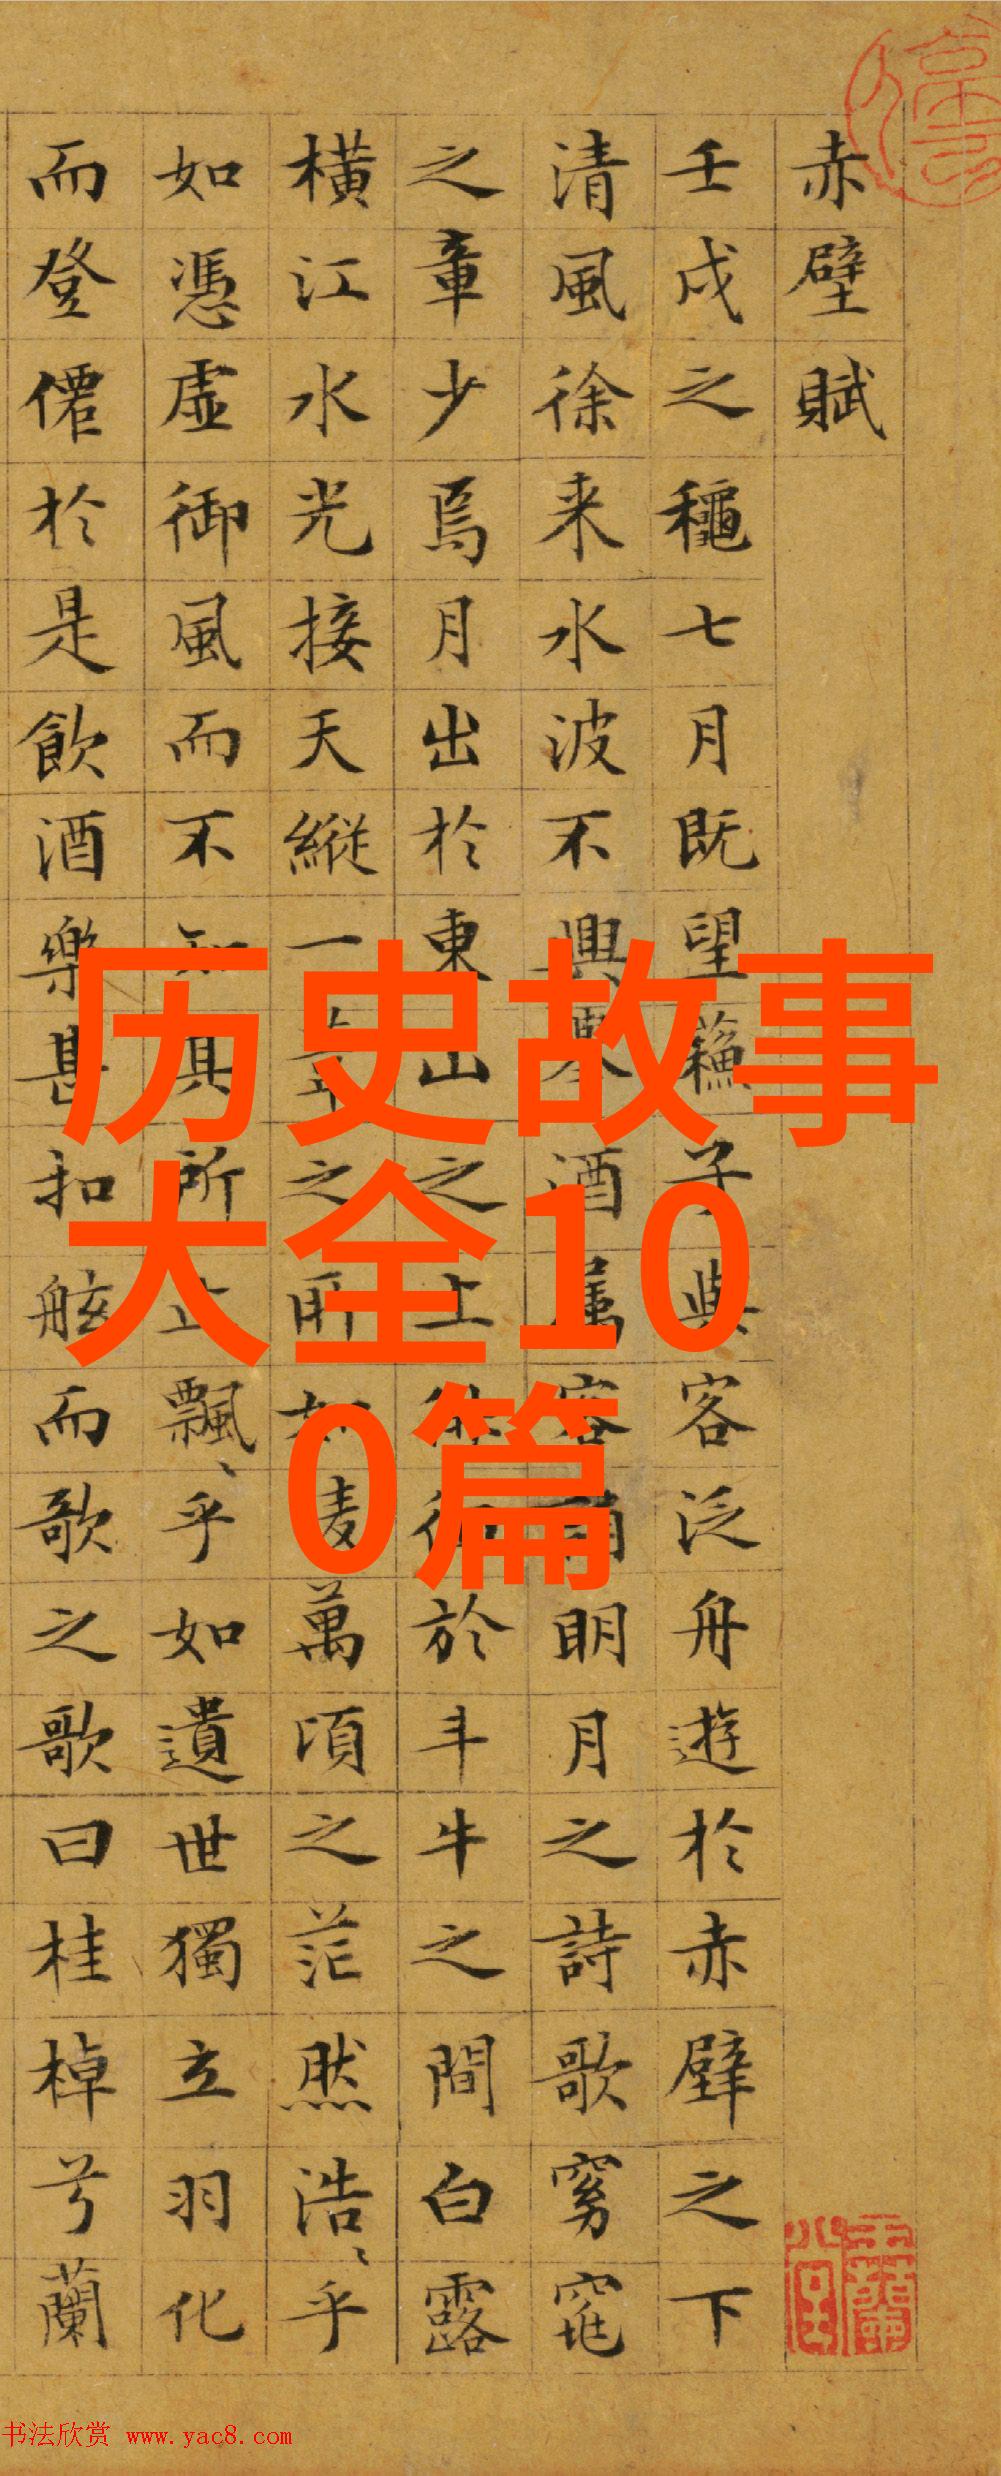 赤壁賦
壬戌之穐七月既望蘓子與客泛舟遊於赤壁之下
清風徐来水波不興舉酒屬客誦明月之詩歌窈窕
之章少焉月出於東山之上徘徊於斗牛之間白露
橫江水光接天縱一葦之所如凌萬頃之茫然浩、乎
如憑虛御風而不知其所止飄、乎如遺世獨立羽化
而登僊於是飲酒樂甚扣舷而歌之歌曰桂棹兮蘭
历史故事
大全10
0篇
书法欣赏 www.yac8.com